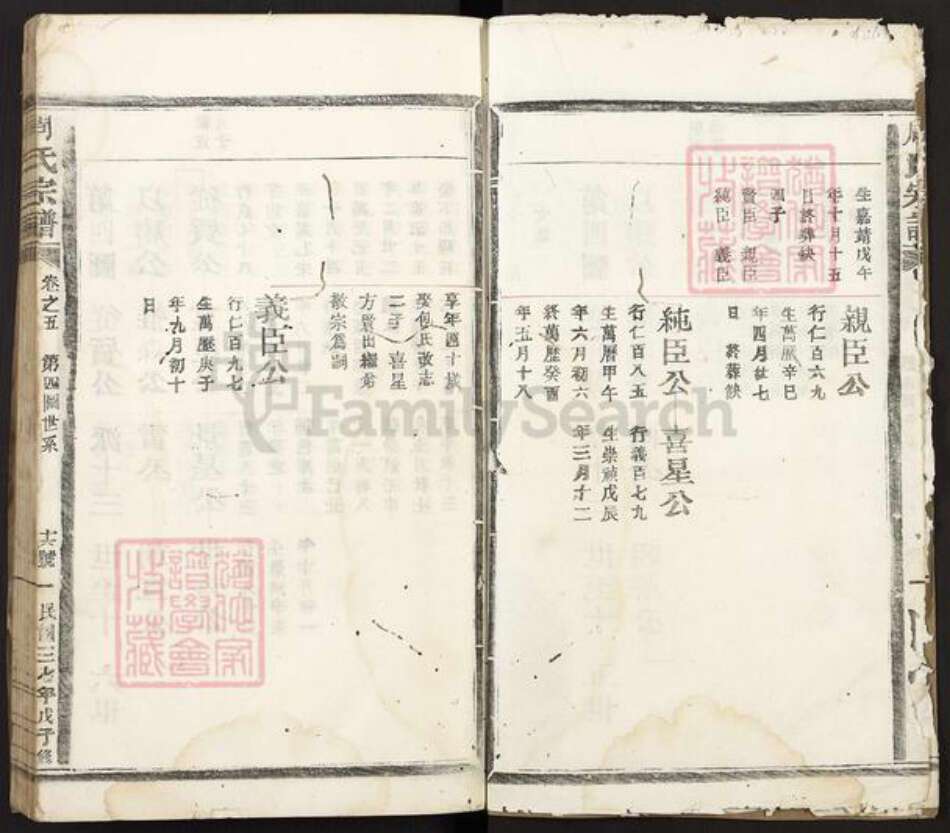 周氏宗譜
生嘉靖戊午
年十月十五
日終葬缺
四子
賢臣 親臣
純臣 義臣
親臣公
行仁百六九
生萬曆辛巳
年四月廿七
日 終葬缺
純臣公
行仁百八五
生萬曆甲午
年六月初六
終萬歷癸酉
年五月十八
喜星公
行義百七九
生崇禎戊辰
年三月十二
享年四十歲
娶包氏改志
二子 喜星
方賢出繼希
敖宗為嗣
義臣公
行仁百九七
生萬歷庚子
年九月初十
日
周氏宗譜
卷之五
第四圖世系
十六號
一
民國三七年戊子修
FamilySearch